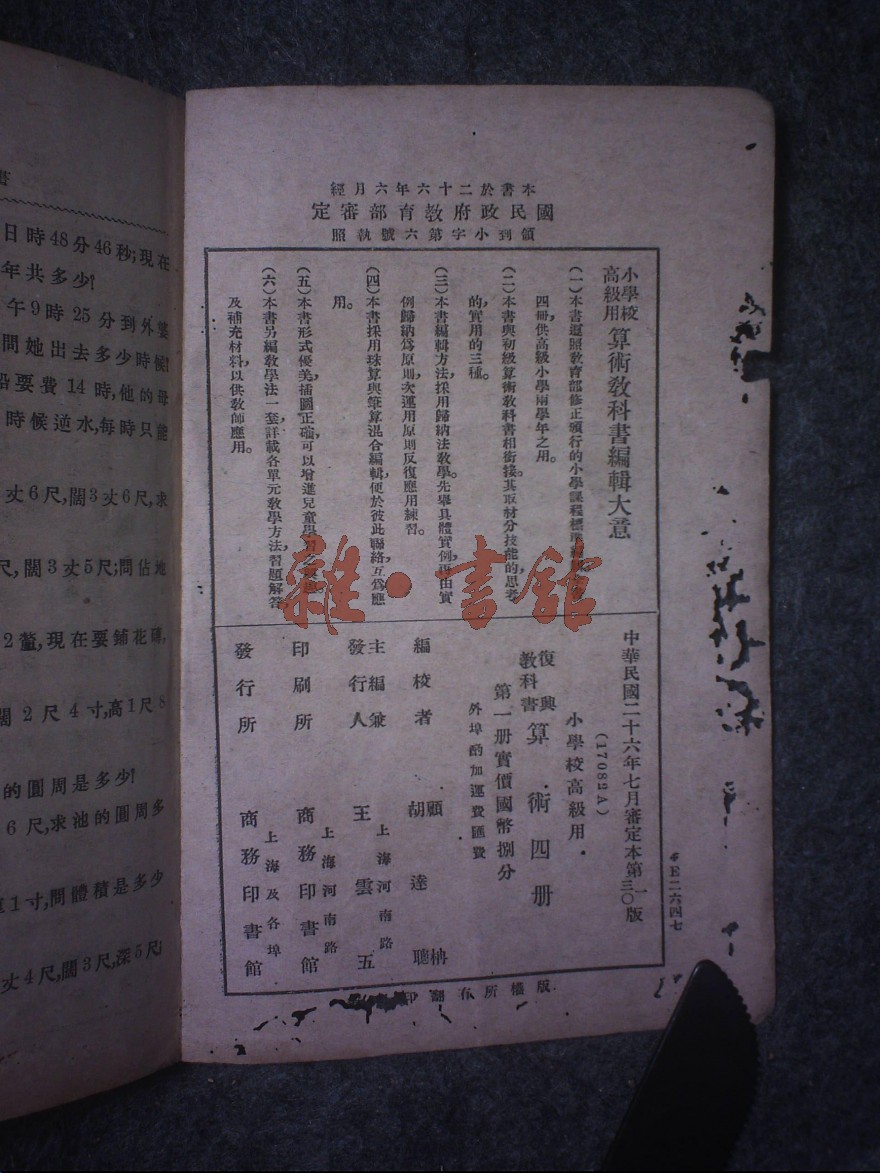 日時48分46秒;現在
年共多少?
午9時25分到外婆
問她出去多少時候?
船要費14時,他的母
時候逆水,每時只能
丈6尺,闊3丈6尺,求
尺,闊3丈5尺;問佔地
2釐,現在要鋪花磚,
闊2尺4寸,高1尺8
的圓周是多少?
6尺,求池的圓周多
1寸,問體積是多少
丈4尺,闊3尺,深5尺
本書於二十六年六月經
國民政府教育部審定
領到小字第六號執照
小學校高級用算術教科書編輯大意
(一)本書遵照教育部修正頒行的小學課程標準
四冊,供高級小學兩學年之用。
(二)本書與初級算術教科書相銜接,其取材分技能的,思考
的,實用的三種。
(三)本書編輯方法,採用歸納法教學。先舉具體實例,再由實
例歸納為原則,次運用原則反復應用練習。
(四)本書採用珠算與筆算混合編輯,便於彼此聯絡,互爲應
用。
(五)本書形式優美,插圖正確,可以增進兒童學習之
(六)本書另編教學法一套,詳載各單元教學方法,習題解答,
及補充材料,以供教師應用。
中華民國二十六年七月審定本第一三〇版
(17082A)
小學校高級用
復興教科書算術四冊
第一冊實價國幣捌分
外埠酌加運費匯費
編校者
顧枏
胡達聰
主編兼發行人
王雲五
上海河南路
印刷所
商務印書館
上海河南路
發行所
商務印書館
上海及各埠
版權所有翻印
E二六四七
雜·書館